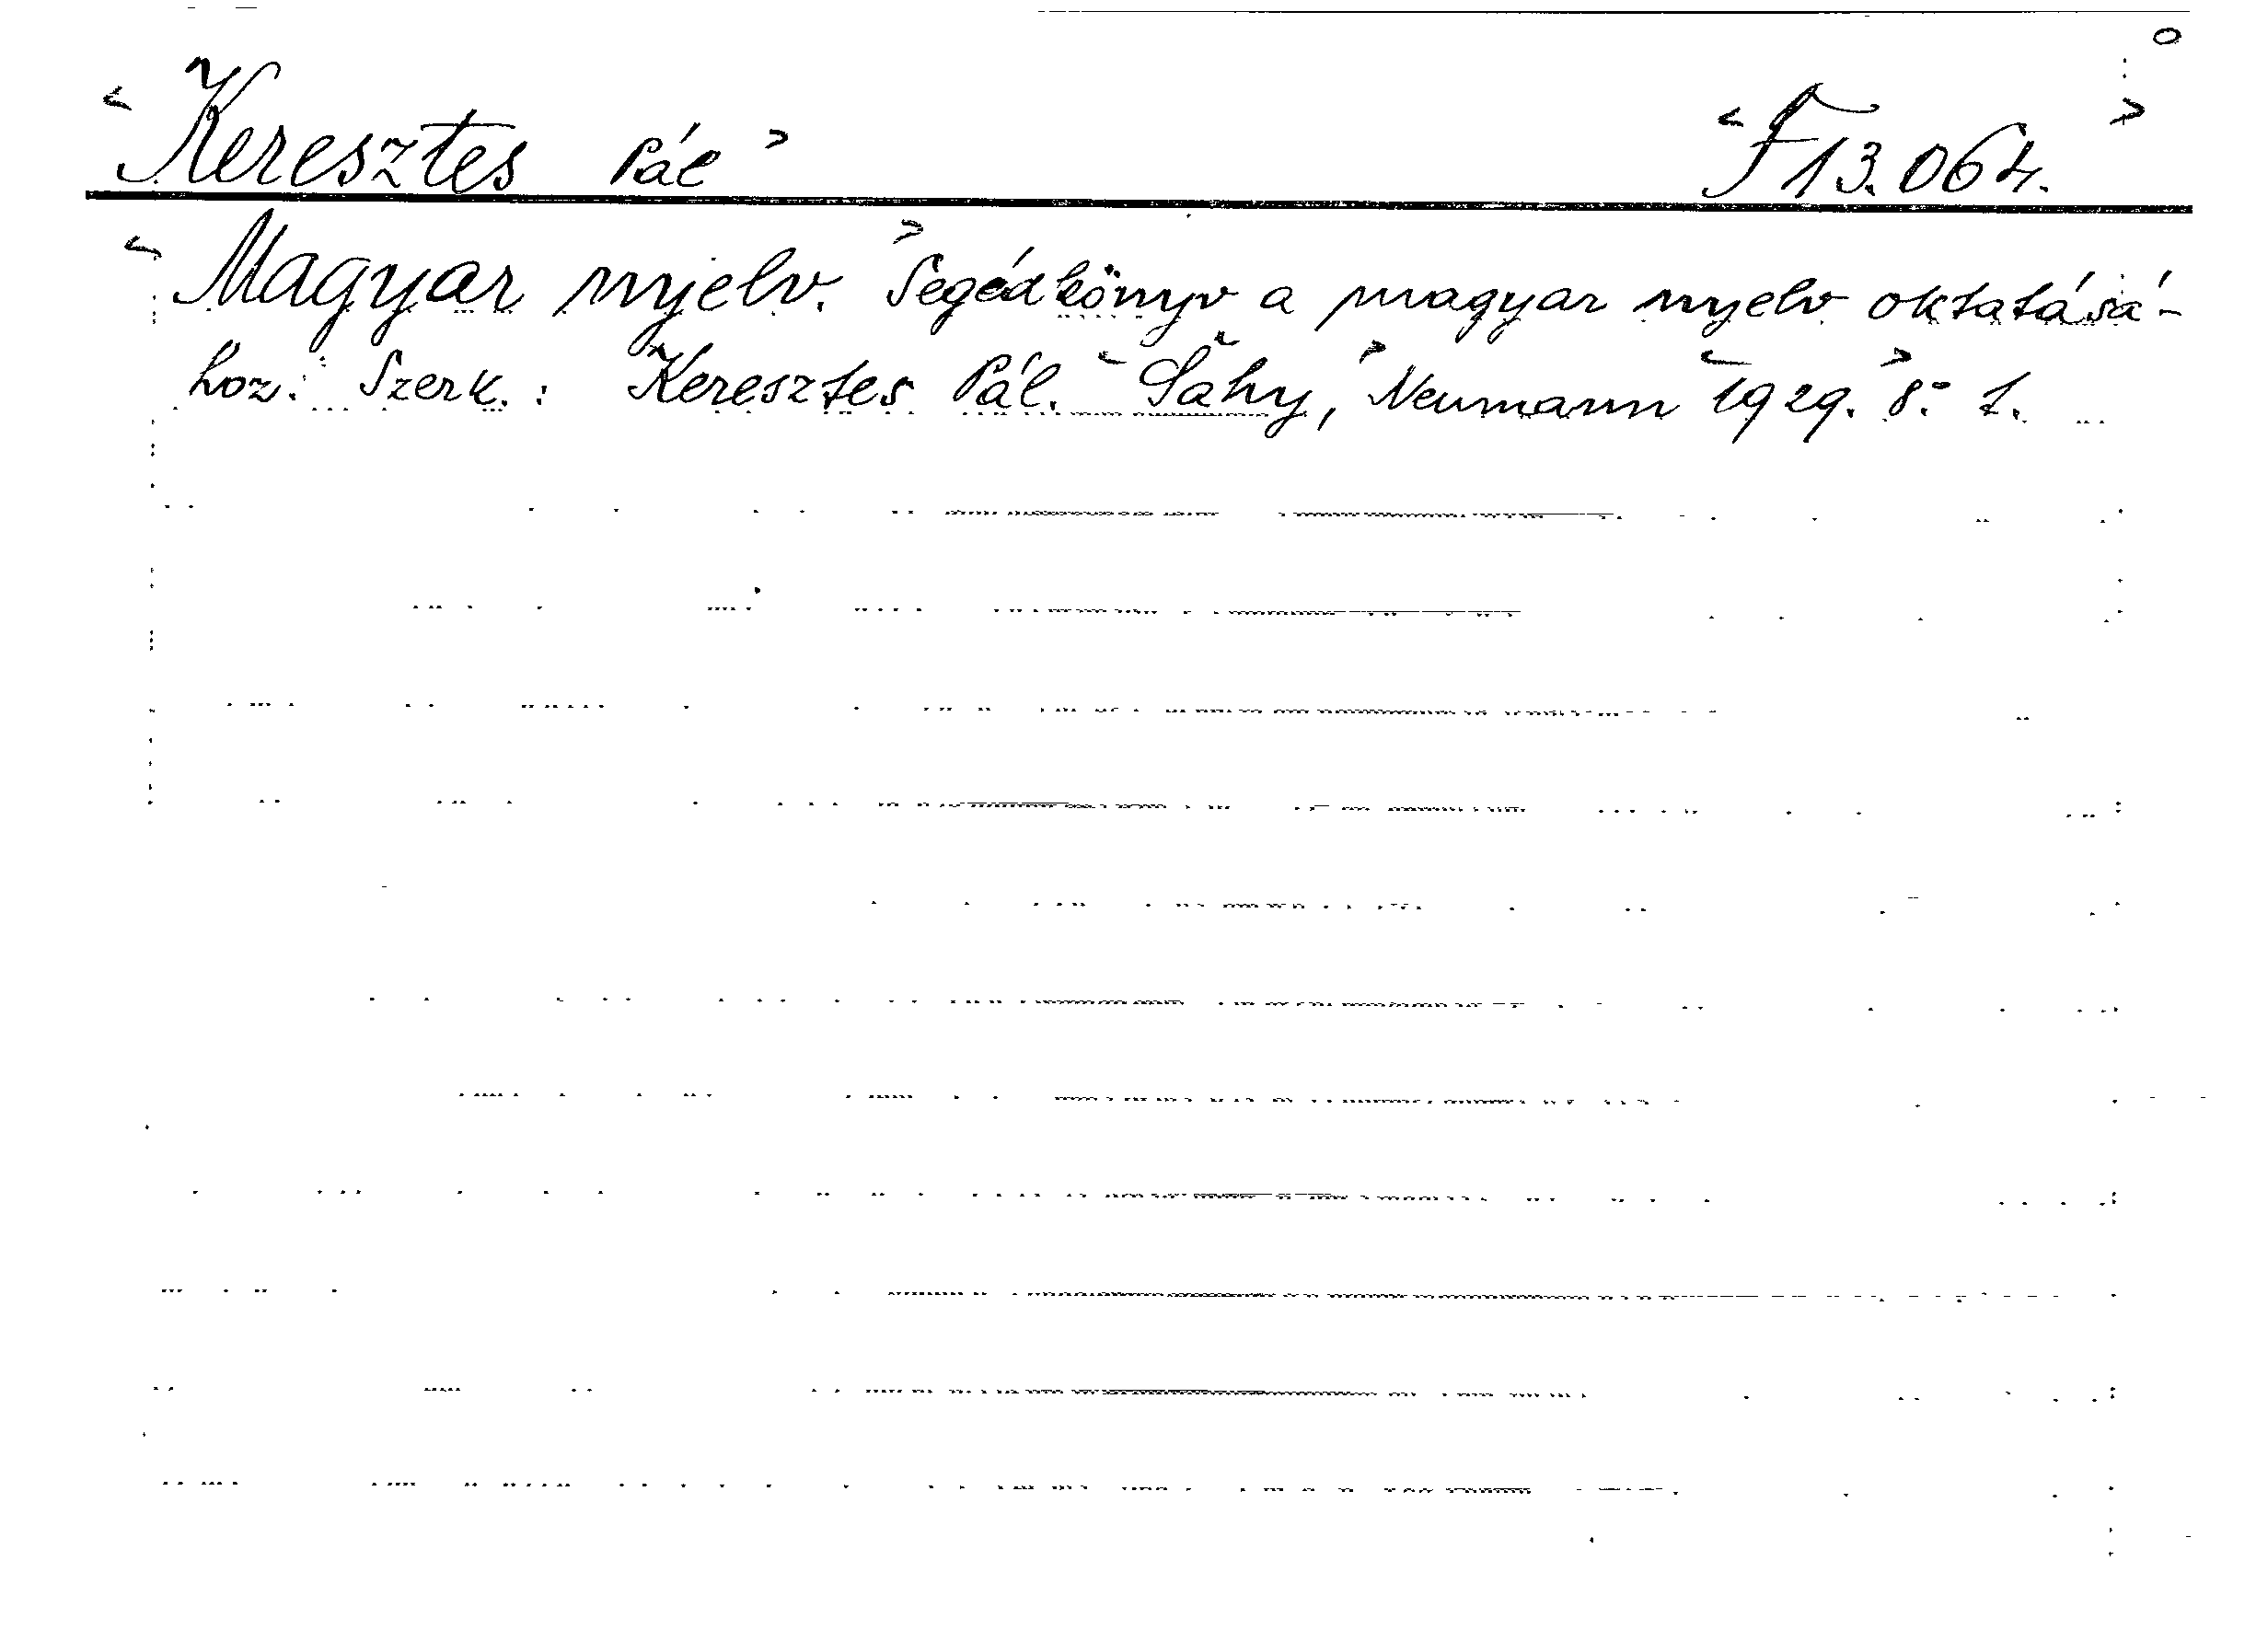 <Keresztes Pál> <F 13.064.>
<Magyar nyelv.> Segédkönyv a magyar nyelv oktatásá-
hoz. Szerk.: Keresztes Pál. <Šahy,> Neumann <1929.> 8° 1.